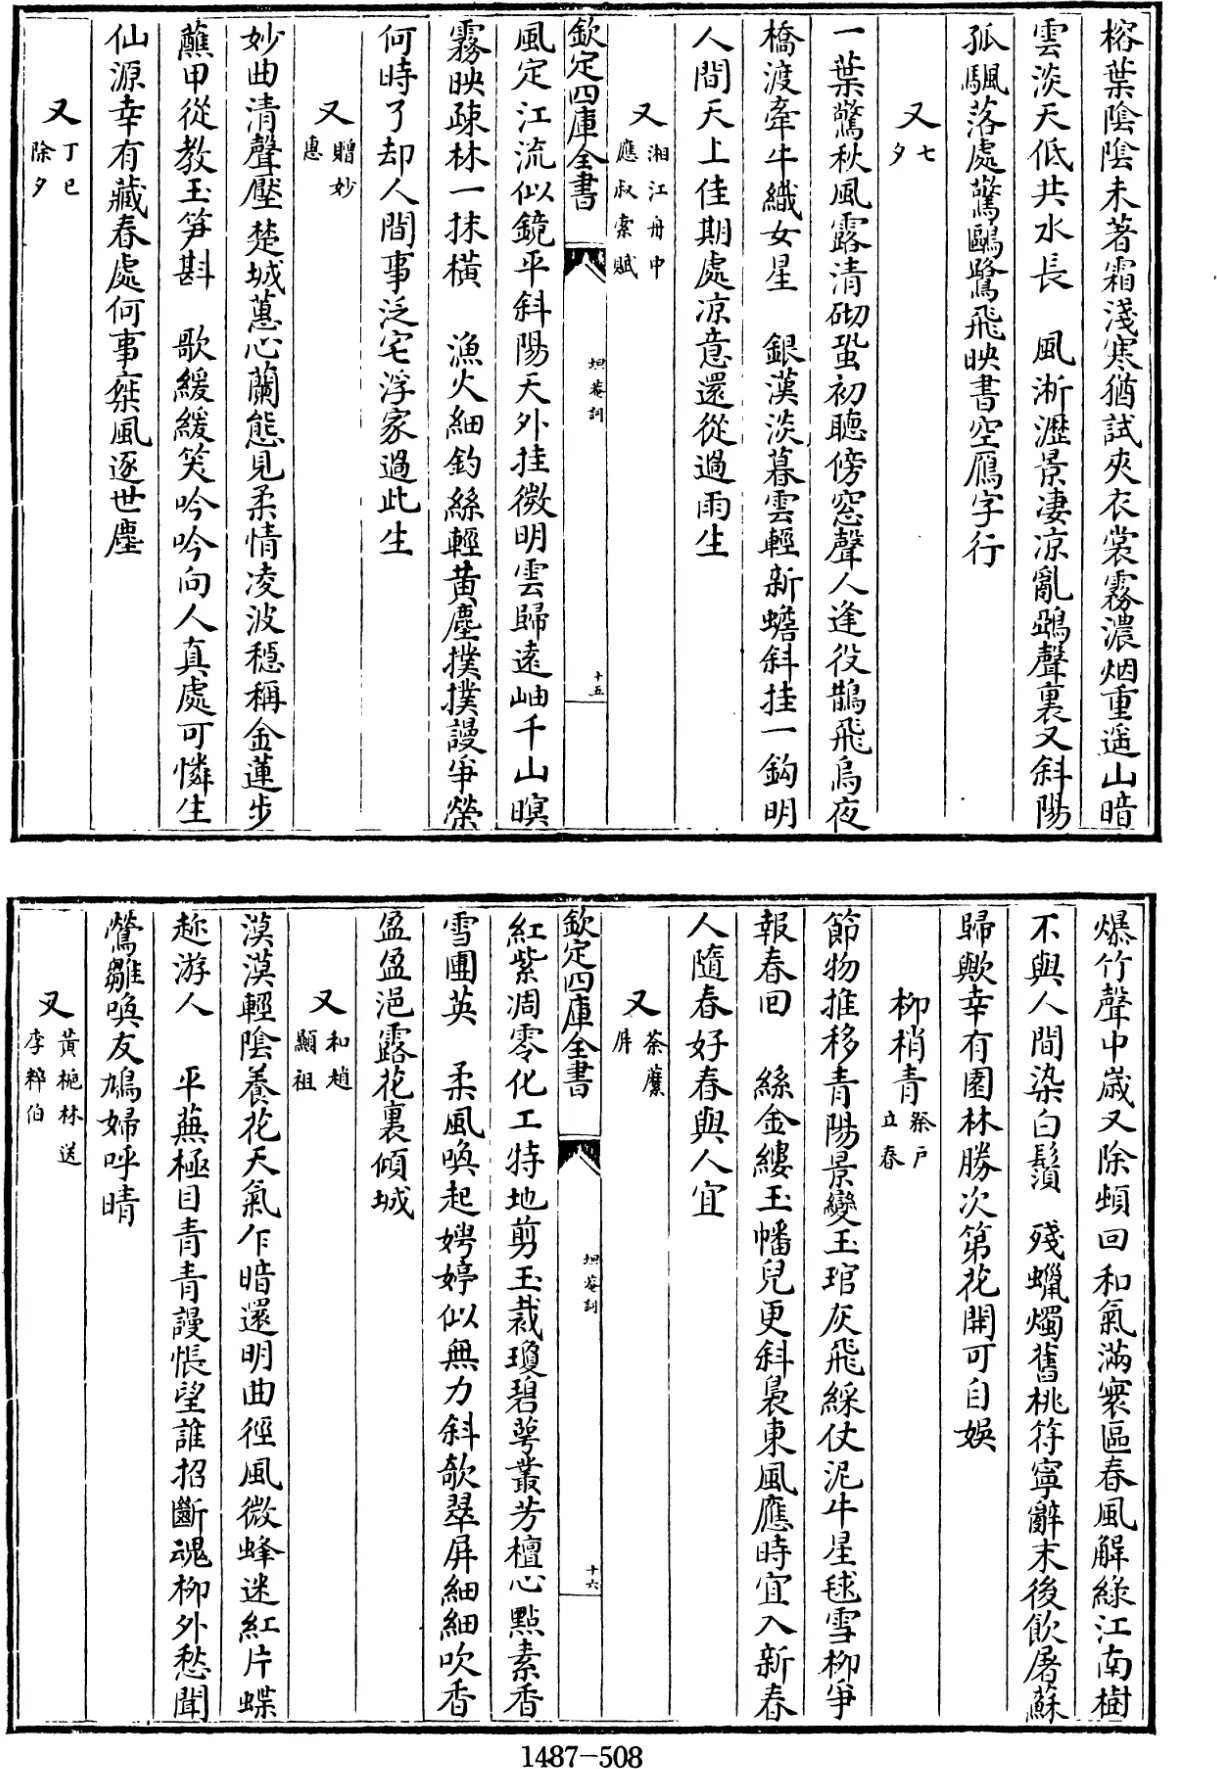 榕葉陰陰未著霜淺寒猶試夾衣裳霧濃烟重遥山暗
雲淡天低共水長　風淅瀝景凄凉亂鴉聲裏又斜陽
孤颿落處驚鷗鷺飛映書空鴈字行
又七夕
一葉驚秋風露清砌蛩初聽傍窓聲人逢役鵲飛烏夜
橋渡牽牛織女星　銀漢淡暮雲輕新蟾斜挂一鈎明
人間天上佳期處凉意還從過雨生
又湘江舟中應叔索賦
欽定四庫全書　坦菴詞　十五
風定江流似鏡平斜陽天外挂微明雲歸遠岫千山暝
霧映疎林一抹横　漁火細釣絲輕黄塵撲撲謾爭榮
何時了却人間事泛宅浮家過此生
又贈妙惠
妙曲清聲壓楚城蕙心蘭態見柔情凌波穩稱金蓮步
蘸甲從教玉笋斟　歌緩緩笑吟吟向人真處可憐生
仙源幸有藏春處何事桒風逐世塵
又丁巳除夕
爆竹聲中歳又除頓回和氣滿寰區春風解綠江南樹
不與人間染白鬚　殘蠟燭舊桃符寧辭末後飲屠蘇
歸歟幸有園林勝次第花開可自娱
柳梢青祭戸立春
節物推移青陽景變玉琯灰飛綵仗泥牛星毬雪柳爭
報春回　絲金縷玉幡兒更斜裊東風應時宜入新春
人隨春好春與人宜
又荼䕷屏
欽定四庫全書　坦菴詞　十六
紅紫凋零化工特地剪玉裁瓊碧萼叢芳檀心點素香
雪團英　柔風喚起娉婷似無力斜欹翠屏細細吹香
盈盈浥露花裏傾城
又和趙顯祖
漠漠輕陰養花天氣乍暗還明曲徑風微蜂迷紅片蝶
趂游人　平蕪極目青青謾悵望誰招斷魂柳外愁聞
鶯雛喚友鳩婦呼晴
又黄栀林送李粹伯
1487-508